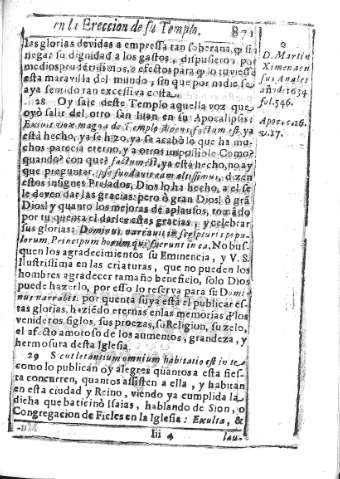 en la Ereccion de su Templo. 871
las glorias devidas a empressa tan soberana, q̃ sin
negar su dignidad a los gastos, dispusieron por
medios prudentissimos, o efectos para q̃ lo tuviesse
esta maravilla del mundo, sin que por nadie se
aya sentido tan excessiva costa.
28 Oy sale deste Templo aquella voz que
oyò salir del otro san Iuan en su Apocalipsi:
Exivit vox magna de Templo dicens: factum est, ya
està hecho, ya se hizo, ya se acabò lo que ha mu-
chos parecia eterno, y a otros impossible. Como?
quando? con què? factum est, ya està hecho, no ay
que preguntar, fundavit eam altissimus, dizen
estos insignes Prelados, Dios lo ha hecho, a el se
le deven dar las gracias: pero ò gran Dios! ò grã
Dios! y quanto los mejoras de aplausos, tomãdo
por tu quenta el darles estas gracias, y celebrar
sus glorias: Dominus narravit in scripturis popu-
lorum, Principum horum qui fuerunt in ea. No bus-
quen los agradecimientos su Eminencia, y V. S.
Ilustrissima en las criaturas, que no pueden los
hombres agradecer tamaño beneficio, solo Dios
puede hazerlo, por esso lo reserva para si: Domi-
nus narrabit. por quenta suya està el publicar es-
tas glorias, haziẽdo eternas en las memorias d̃ los
venideros siglos, sus proezas, su Religion, su zelo,
el afecto amoroso de los aumentos, grandeza, y
hermosura desta Iglesia.
29 Sicut lætantium omnium habitatio est in te
como lo publican oy alegres quantos a esta fies-
ta concurren, quantos assisten a ella, y habitan
en esta ciudad y Reino, viendo ya cumplida la
dicha que batícinò Isaias, hablando de Sion, o
Congregacion de Fieles en la Iglesia: Exulta, &
Iii 4 lau-
D. Martin
Ximena en
sus Anales
año d̃ 1634
fol. 546.
Apoc. c. 16.
v. 17.